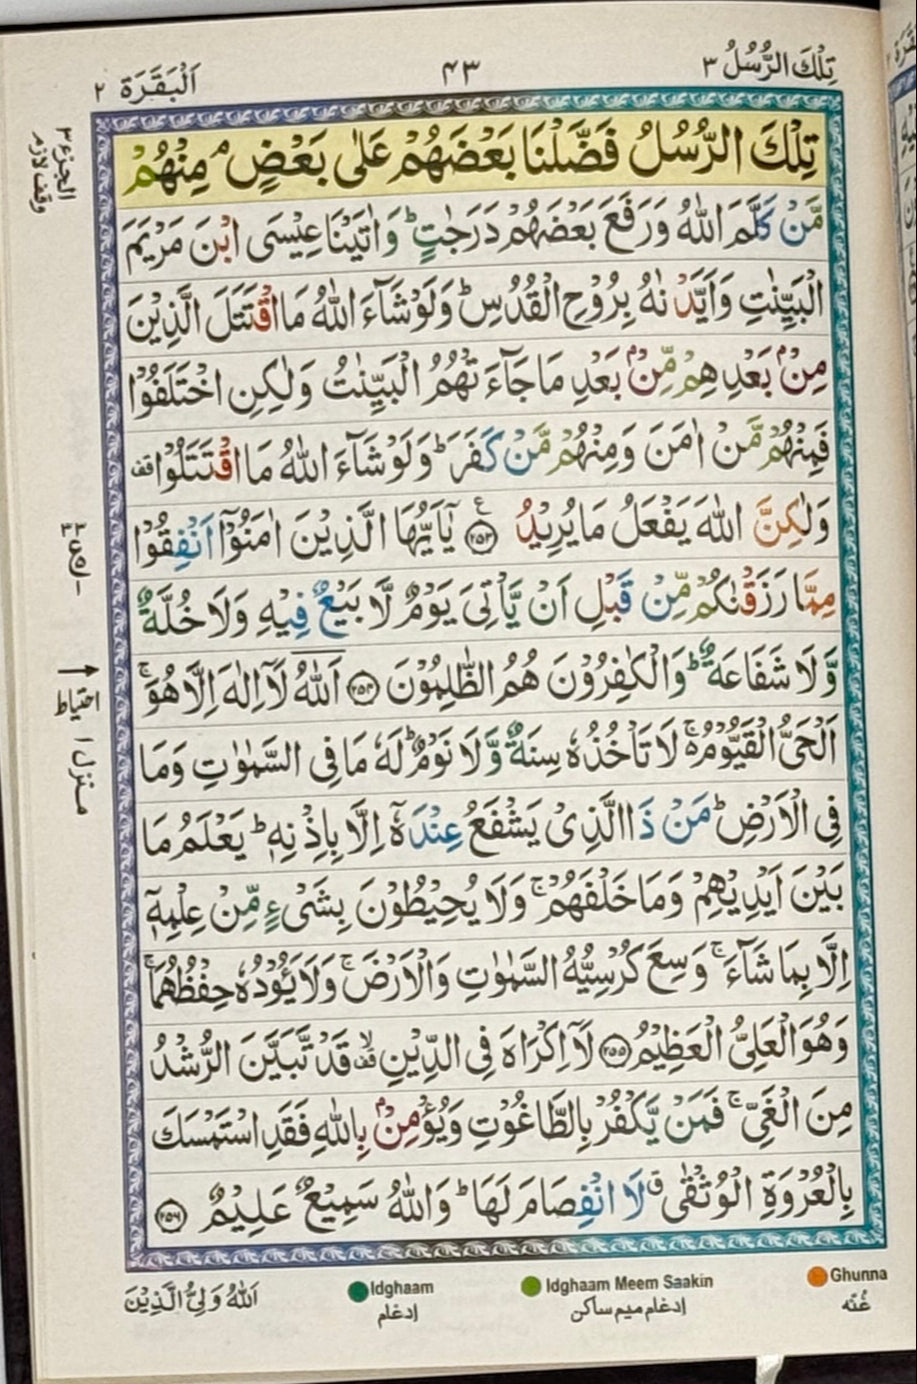 تِلْكَ الرُّسُلُ ٣
٤٣
اَلْبَقَرَة ٢
تِلْكَ الرُّسُلُ فَضَّلْنَا بَعْضَهُمْ عَلٰى بَعْضٍ ۘ مِنْهُمْ
مَّنْ كَلَّمَ اللّٰهُ وَرَفَعَ بَعْضَهُمْ دَرَجٰتٍ ؕ وَاٰتَيْنَا عِيْسَى ابْنَ مَرْيَمَ
الْبَيِّنٰتِ وَاَيَّدْنٰهُ بِرُوْحِ الْقُدُسِ ؕ وَلَوْ شَآءَ اللّٰهُ مَا اقْتَتَلَ الَّذِيْنَ
مِنْۢ بَعْدِهِمْ مِّنْۢ بَعْدِ مَا جَآءَتْهُمُ الْبَيِّنٰتُ وَلٰكِنِ اخْتَلَفُوْا
فَمِنْهُمْ مَّنْ اٰمَنَ وَمِنْهُمْ مَّنْ كَفَرَ ؕ وَلَوْ شَآءَ اللّٰهُ مَا اقْتَتَلُوْا قف
وَلٰكِنَّ اللّٰهَ يَفْعَلُ مَا يُرِيْدُ ع ﴿٢٥٣﴾ يٰٓاَيُّهَا الَّذِيْنَ اٰمَنُوْٓا اَنْفِقُوْا
مِمَّا رَزَقْنٰكُمْ مِّنْ قَبْلِ اَنْ يَّاْتِىَ يَوْمٌ لَّا بَيْعٌ فِيْهِ وَلَا خُلَّةٌ
وَّلَا شَفَاعَةٌ ؕ وَالْكٰفِرُوْنَ هُمُ الظّٰلِمُوْنَ ﴿٢٥٤﴾ اَللّٰهُ لَآ اِلٰهَ اِلَّا هُوَ ۚ
اَلْحَىُّ الْقَيُّوْمُ ۚ لَا تَاْخُذُهٗ سِنَةٌ وَّلَا نَوْمٌ ؕ لَهٗ مَا فِى السَّمٰوٰتِ وَمَا
فِى الْاَرْضِ ؕ مَنْ ذَا الَّذِىْ يَشْفَعُ عِنْدَهٗٓ اِلَّا بِاِذْنِهٖ ؕ يَعْلَمُ مَا
بَيْنَ اَيْدِيْهِمْ وَمَا خَلْفَهُمْ ۚ وَلَا يُحِيْطُوْنَ بِشَىْءٍ مِّنْ عِلْمِهٖٓ
اِلَّا بِمَا شَآءَ ۚ وَسِعَ كُرْسِيُّهُ السَّمٰوٰتِ وَالْاَرْضَ ۚ وَلَا يَـُٔوْدُهٗ حِفْظُهُمَا ۚ
وَهُوَ الْعَلِىُّ الْعَظِيْمُ ﴿٢٥٥﴾ لَآ اِكْرَاهَ فِى الدِّيْنِ قف لا قَدْ تَّبَيَّنَ الرُّشْدُ
مِنَ الْغَىِّ ۚ فَمَنْ يَّكْفُرْ بِالطَّاغُوْتِ وَيُؤْمِنْۢ بِاللّٰهِ فَقَدِ اسْتَمْسَكَ
بِالْعُرْوَةِ الْوُثْقٰى ق لَا انْفِصَامَ لَهَا ؕ وَاللّٰهُ سَمِيْعٌ عَلِيْمٌ ﴿٢٥٦﴾
الجزء ٣
وقف لازم
احتياط
منزل ١
Ghunna
غُنّه
Idghaam Meem Saakin
إدغام ميم ساكن
Idghaam
إدغام
اَللّٰهُ وَلِىُّ الَّذِيْنَ